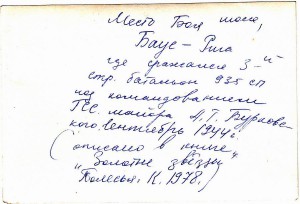 Место боя шоссе,
Баус – Рига
где сражался 3-й
стр. батальон 935 сп
под командованием
ГСС. майора И. Т. Бурков-
кого. Сентябрь 1944 г.
(описано в книге
"Золотые звёзды
Полесья." К. 1978.)